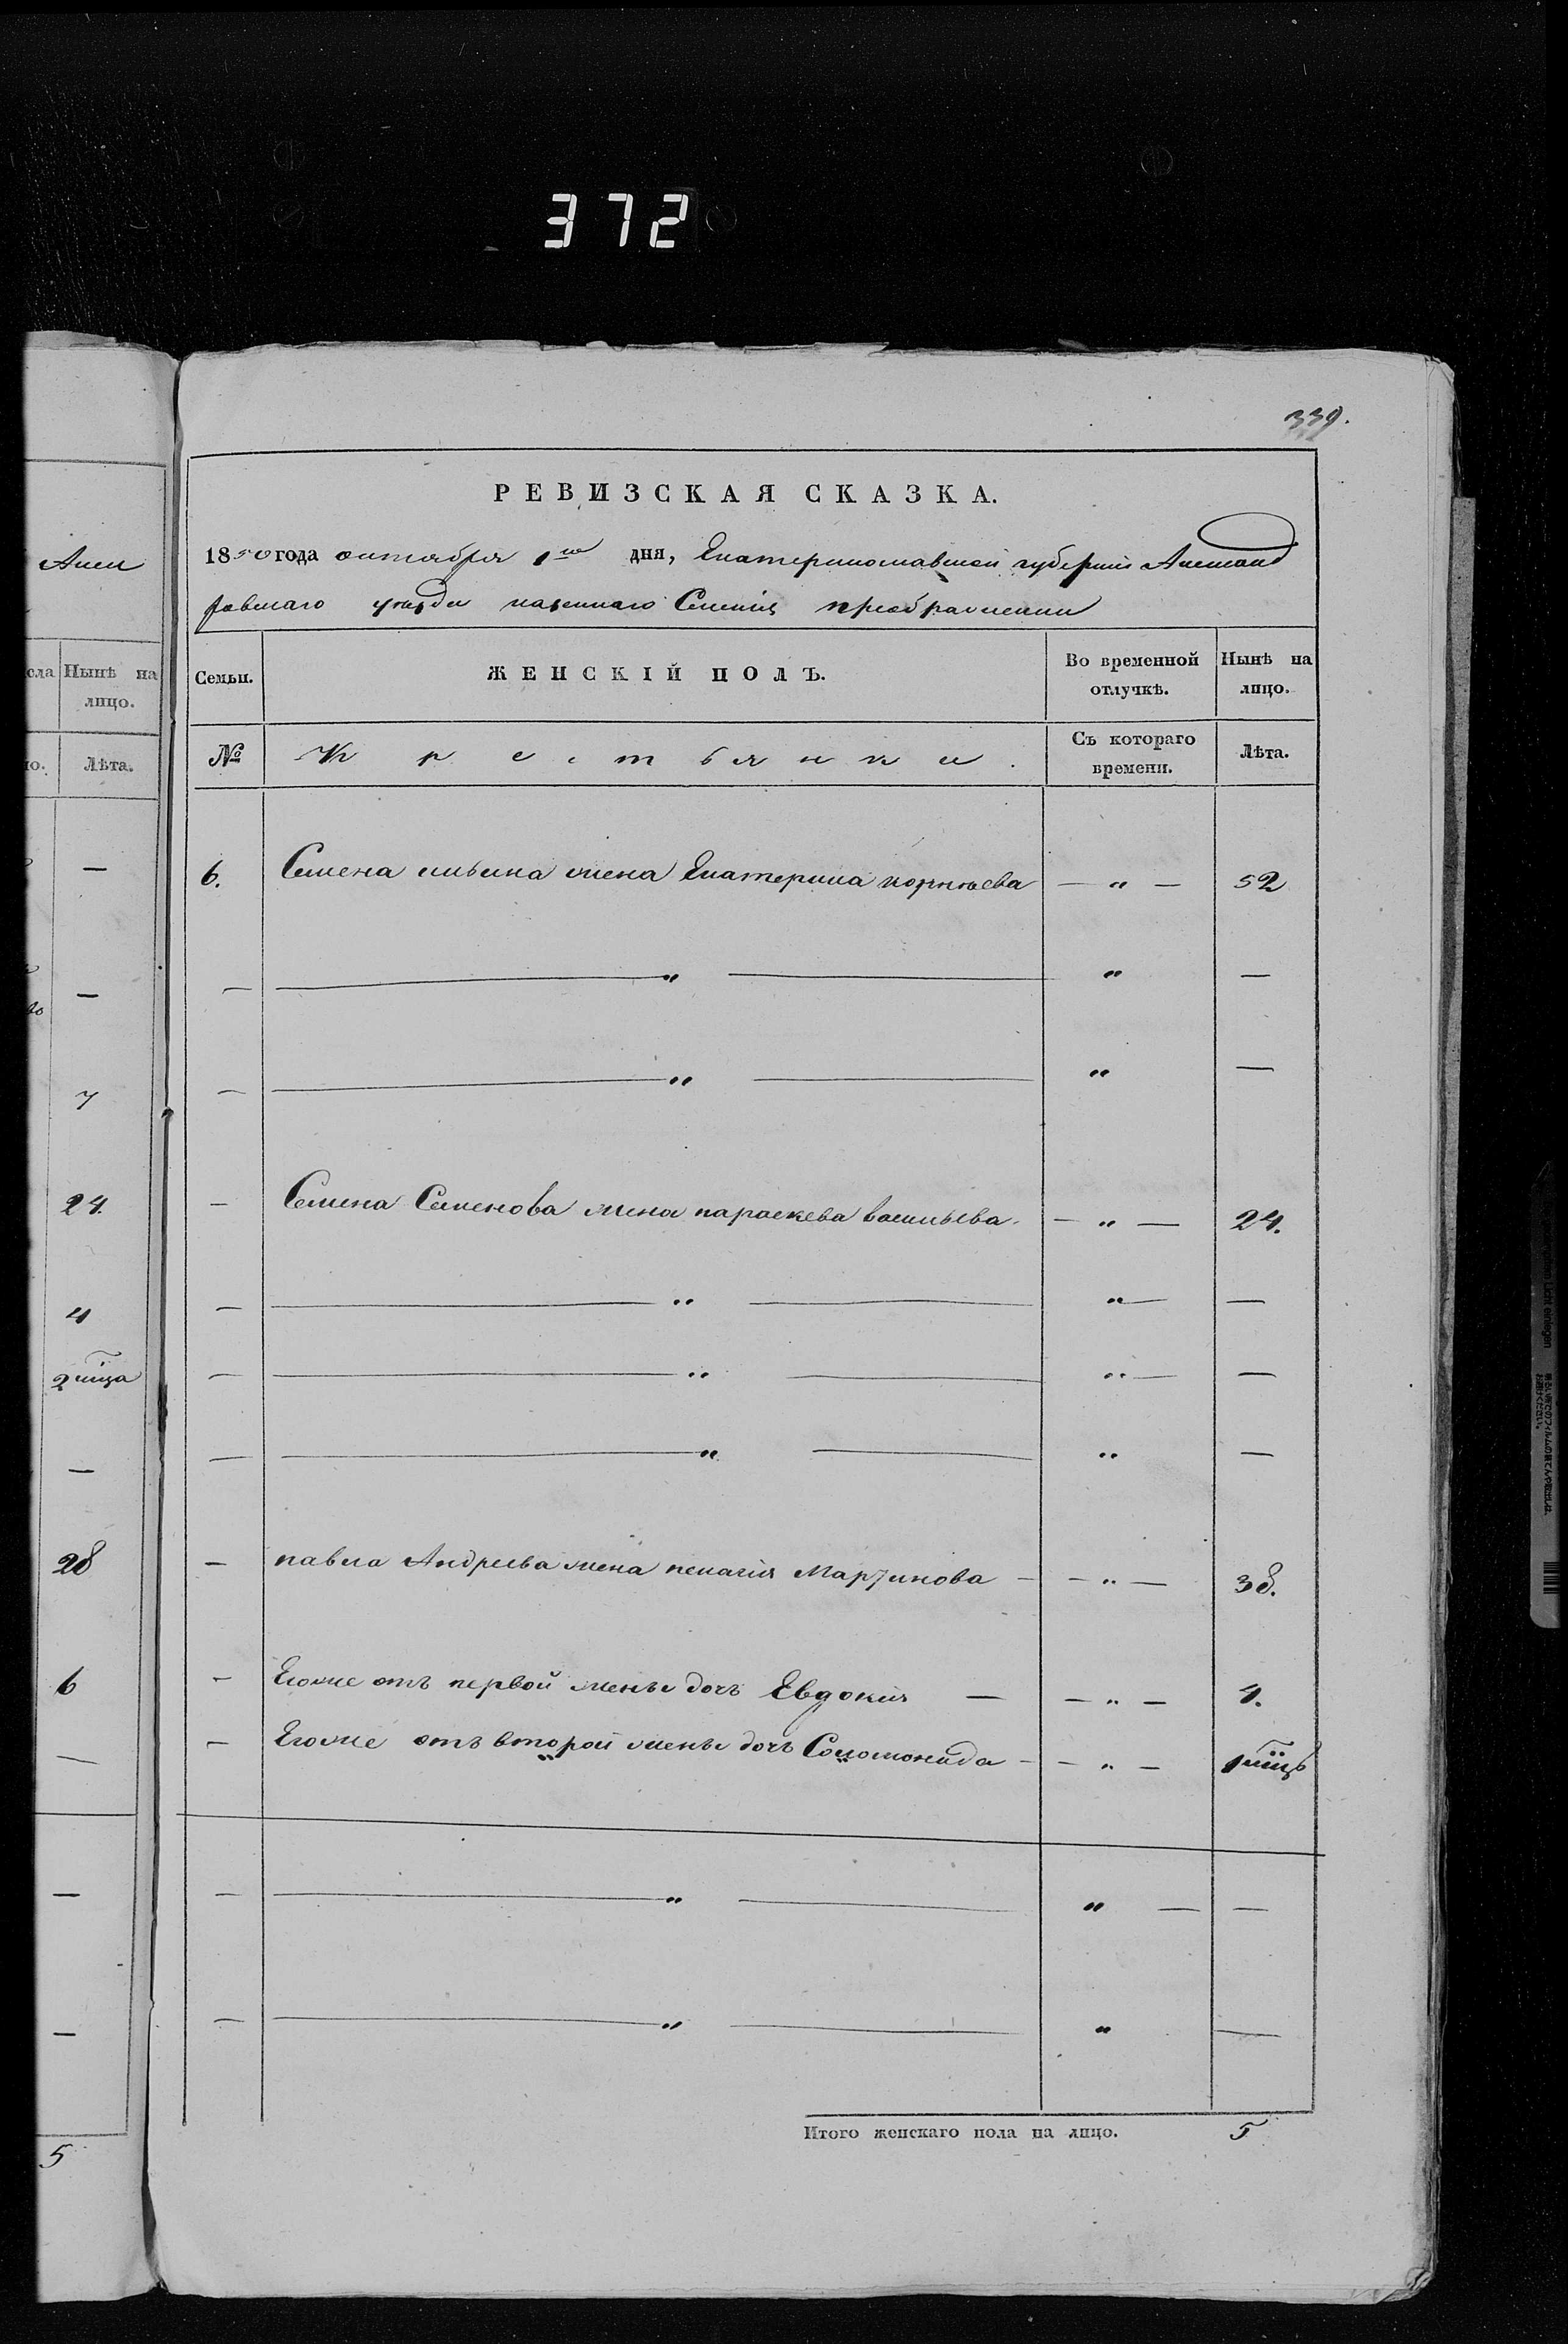 372
339.
РЕВИЗСКАЯ СКАЗКА.
1850 года октября 1го дня, Екатеринославской губернии Александ
ровскаго уезда казеннаго Селения преображенки
Семьи. ЖЕНСКІЙ ПОЛЪ. Во временной отлучкѣ. Нынѣ на лицо.
№ Крестьянки. Съ котораго времени. Лѣта.
6. Семена ильина жена Екатерина корнѣева — „ — 52
— „ „ —
— „ „ —
— Семена Семенова жена параскева васильева — „ — 24.
— „ „ — —
— „ „ — —
— „ „ —
— павла Андреева жена пелагия Мартинова — „ — 38.
— Егоже отъ первой жены дочь Евдокия — „ — 4.
— Егоже отъ второй жены дочь Соломонида — „ — 1 мцъ
— „ „ — —
— „ „ —
Итого женскаго пола на лицо. 5
Алек
сла Нынѣ на лицо.
ло. Лѣта.
—
—
7
24.
4
2 мца
—
28
6
—
—
—
5